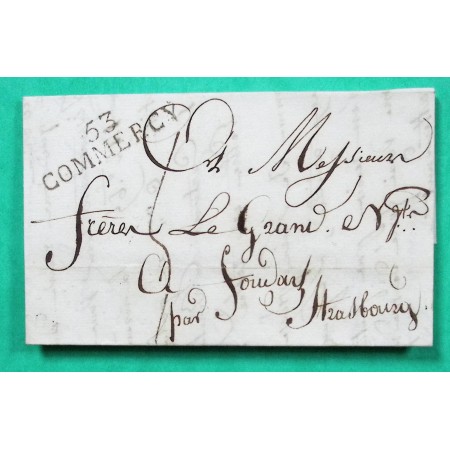 53
COMMERCY
Messieurs
frères Le Grand. & Ngts
A fouday
par Strasbourg.